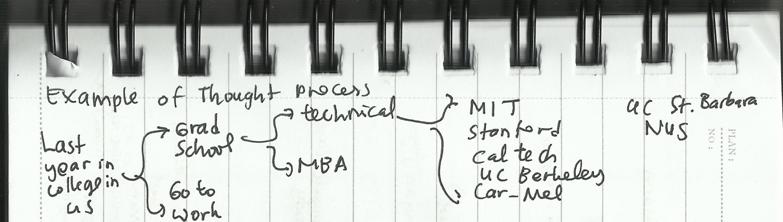 Example of Thought process
Last
year in
college in
US
Grad
School
Go to
work
technical
MBA
MIT
Stanford
Caltech
UC Berkeley
Car-Mel
UC St. Barbara
NUS
PLAN:
NO: